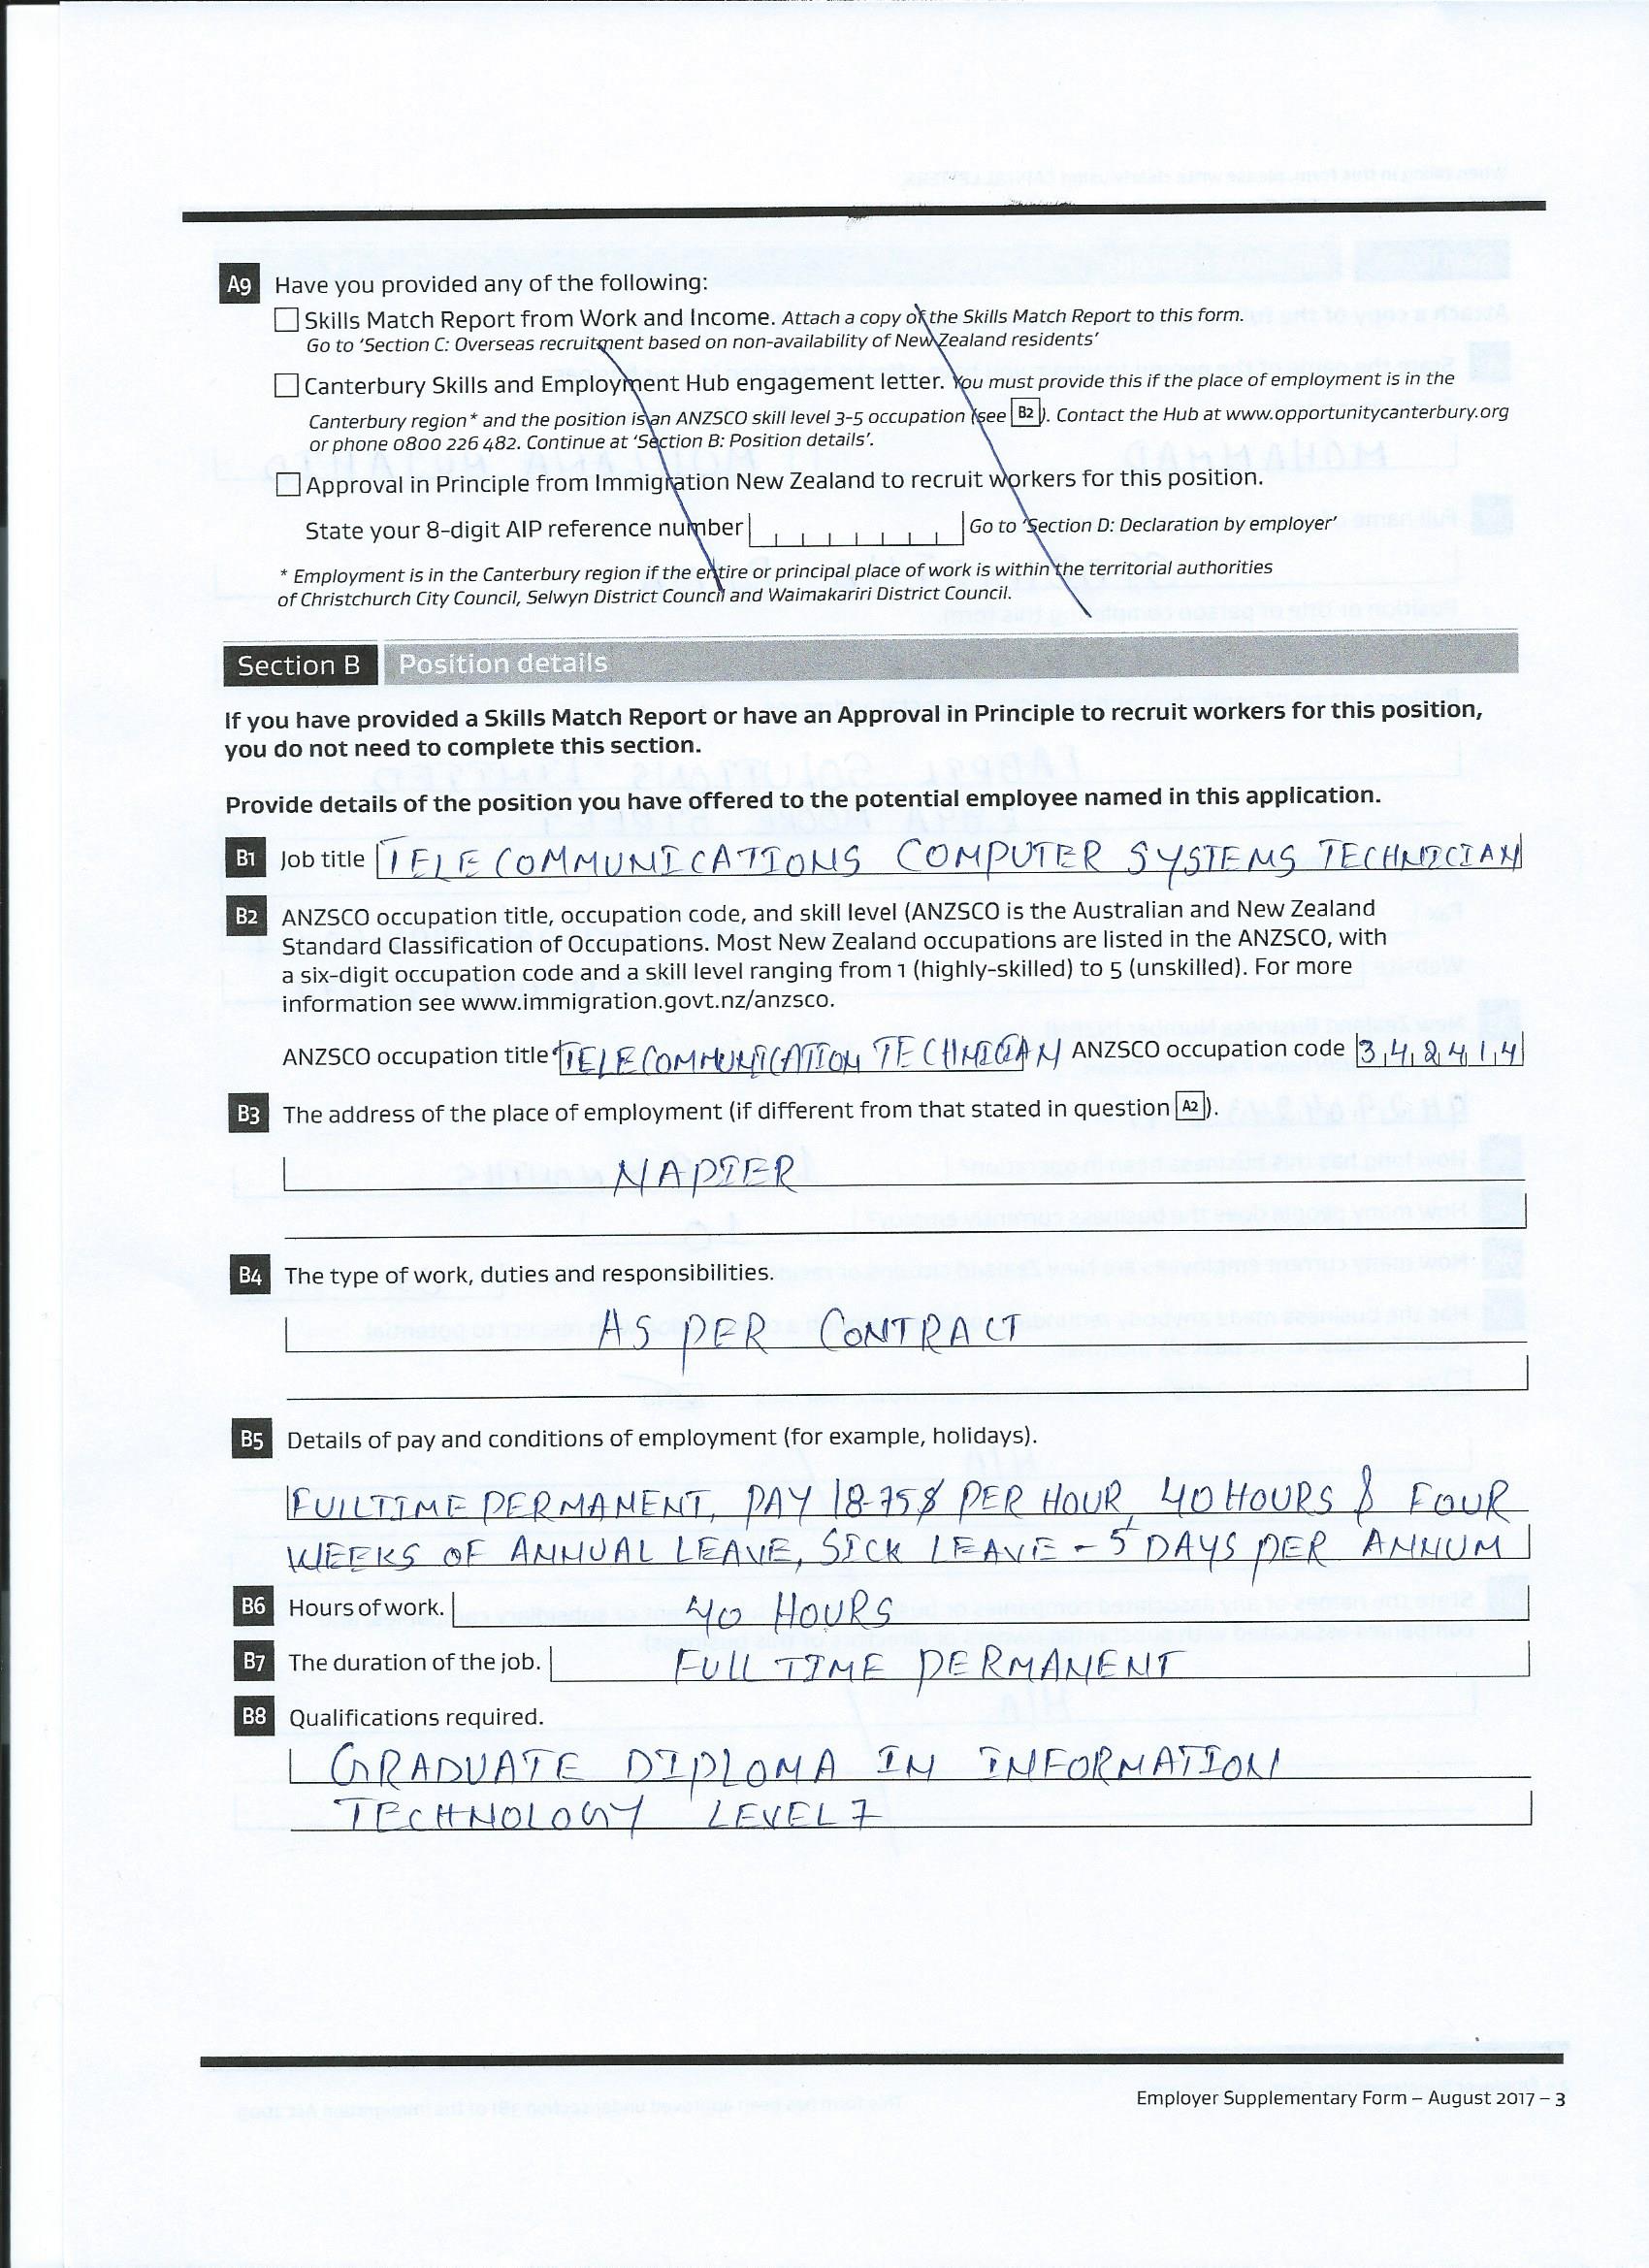 A9 Have you provided any of the following:
Skills Match Report from Work and Income. Attach a copy of the Skills Match Report to this form.
Go to 'Section C: Overseas recruitment based on non-availability of New Zealand residents'
Canterbury Skills and Employment Hub engagement letter. You must provide this if the place of employment is in the
Canterbury region* and the position is an ANZSCO skill level 3-5 occupation (see B2). Contact the Hub at www.opportunitycanterbury.org
or phone 0800 226 482. Continue at 'Section B: Position details'.
Approval in Principle from Immigration New Zealand to recruit workers for this position.
State your 8-digit AIP reference number Go to 'Section D: Declaration by employer'
* Employment is in the Canterbury region if the entire or principal place of work is within the territorial authorities
of Christchurch City Council, Selwyn District Council and Waimakariri District Council.
Section B Position details
If you have provided a Skills Match Report or have an Approval in Principle to recruit workers for this position,
you do not need to complete this section.
Provide details of the position you have offered to the potential employee named in this application.
B1 Job title TELECOMMUNICATIONS COMPUTER SYSTEMS TECHNICIAN
B2 ANZSCO occupation title, occupation code, and skill level (ANZSCO is the Australian and New Zealand
Standard Classification of Occupations. Most New Zealand occupations are listed in the ANZSCO, with
a six-digit occupation code and a skill level ranging from 1 (highly-skilled) to 5 (unskilled). For more
information see www.immigration.govt.nz/anzsco.
ANZSCO occupation title TELECOMMUNICATION TECHNICIAN ANZSCO occupation code 342414
B3 The address of the place of employment (if different from that stated in question A2).
NAPIER
B4 The type of work, duties and responsibilities.
AS PER CONTRACT
B5 Details of pay and conditions of employment (for example, holidays).
FULLTIME PERMANENT, PAY 18-75$ PER HOUR, 40 HOURS & FOUR
WEEKS OF ANNUAL LEAVE, SICK LEAVE - 5 DAYS PER ANNUM
B6 Hours of work. 40 HOURS
B7 The duration of the job. FULL TIME PERMANENT
B8 Qualifications required.
GRADUATE DIPLOMA IN INFORMATION
TECHNOLOGY LEVEL 7
Employer Supplementary Form – August 2017 – 3